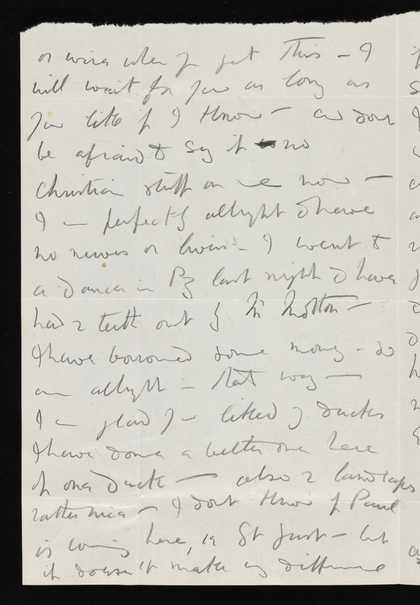 or wire when you get this – I
will wait for you as long as
you like if I know – and dont
be afraid to say it no
Christian stuff on me now –
I am perfectly allright & have
no nerves or – I went to
a dance in Pz last night & have
had 2 teeth out by Mr Motton –
I have borrowed some money – so
am allright in that way –
I am glad you liked ducks
I have done a better one here
of one duck – also 2 landscapes
rather nice – I dont know if Paul
is coming here, 19 St Just – but
it doesn't make any difference